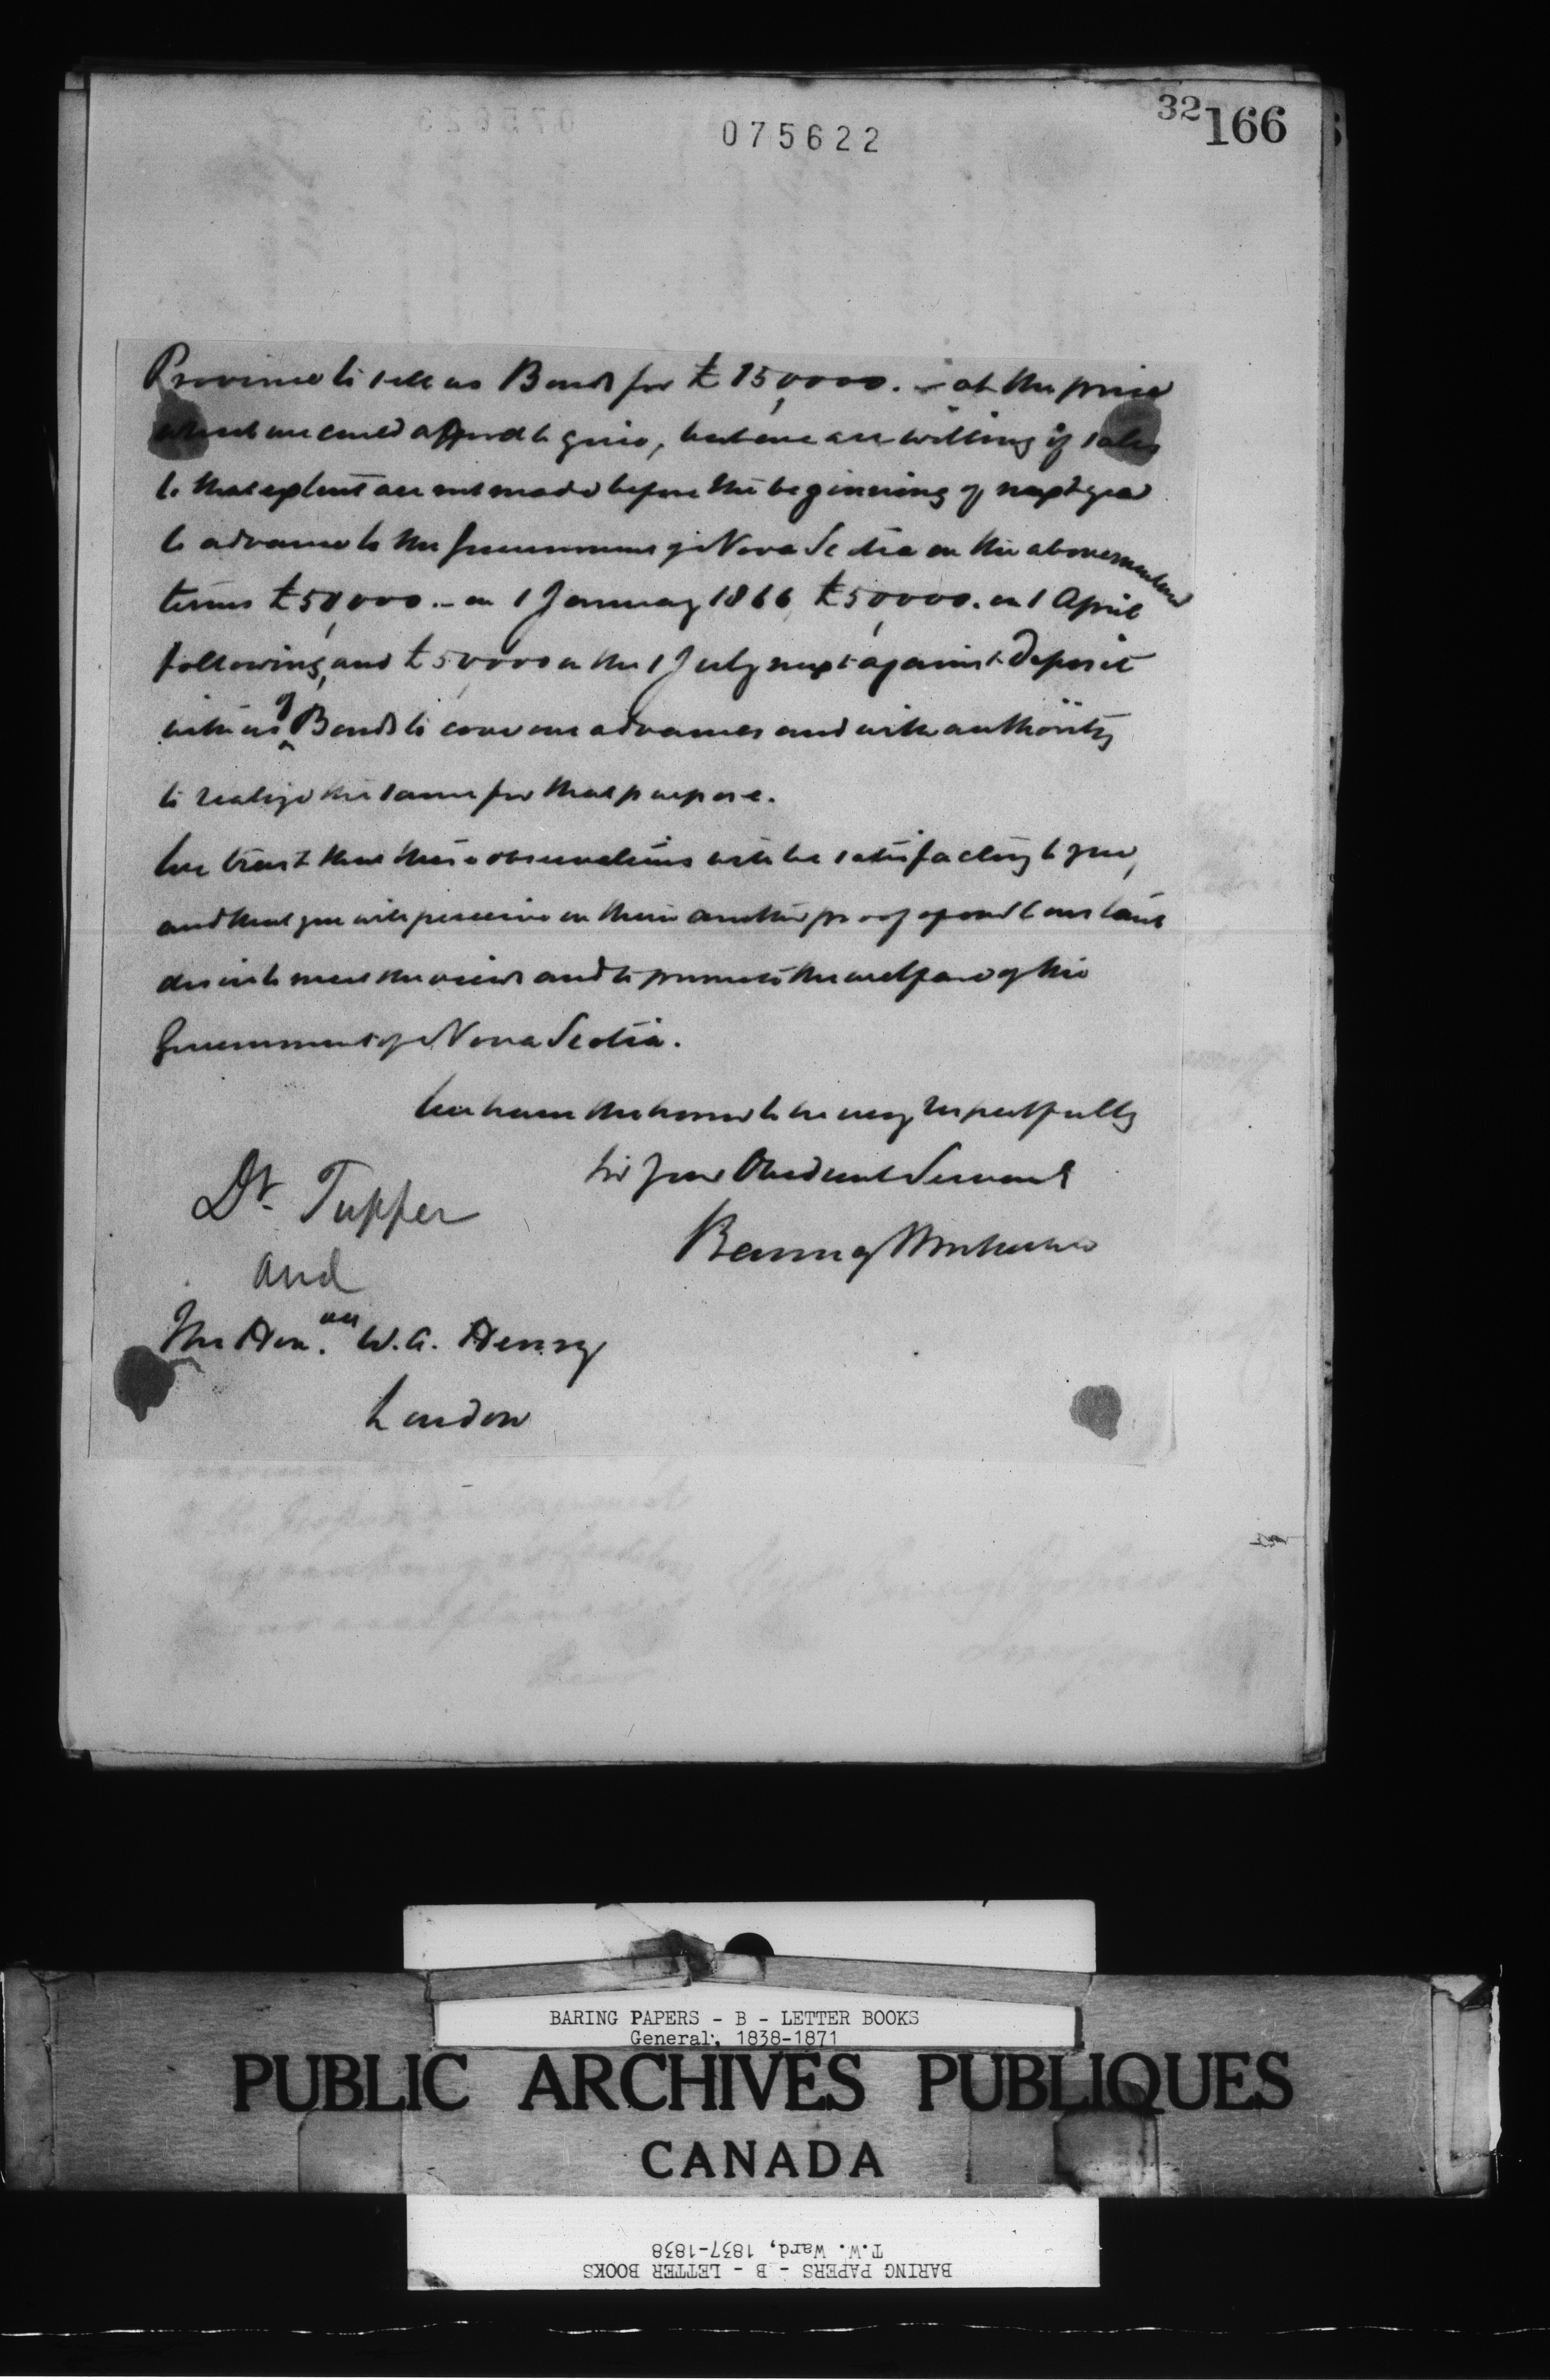 32166
075622
Province to sell us Bonds for £150,000. - at the price
which we could afford to give, but we are willing if sales
to that extent are not made before the beginning of next year
to advance to the Government of Nova Scotia on the abovementioned
terms £50,000. - on 1 January 1866, £50,000. on 1 April
following, and £50,000 on the 1 July next against deposit
with us of Bonds to cover our advances and with authority
to realize the same for that purpose.
We trust that these observations will be satisfactory to you,
and that you will perceive in them another proof of our constant
desire to meet the views and to promote the welfare of the
Government of Nova Scotia.
We have the honor to be very respectfully
Sir Your Obedient Servants
Baring Brothers
Dr. Tupper
and
The Hon.ble W.A. Henry
London
BARING PAPERS - B - LETTER BOOKS
General, 1838-1871
PUBLIC ARCHIVES PUBLIQUES
CANADA
T.W. Ward, 1837-1838
BARING PAPERS - B - LETTER BOOKS